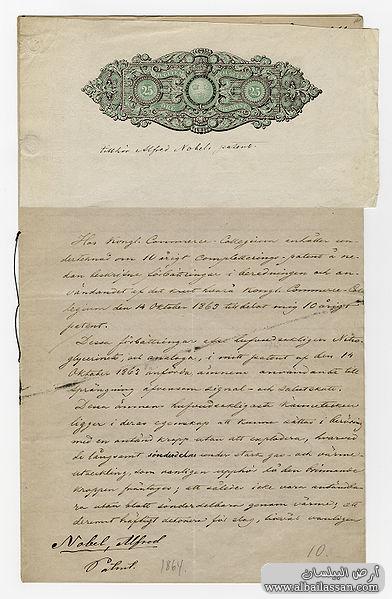 25 25
tillhör Alfred Nobels patent.
Hos Kongl. Commerce-Collegium anhåller un-
dertecknad om 10 årigt Completerings-patent å ne-
dan beskrifne förbättringar i beredningen och an-
vändandet af det krut hvarå Kongl. Commerce-Col-
legium den 14 Oktober 1863 tilldelat mig 10 årigt
patent.
Dessa förbättringar afse hufvudsakligen Nitro-
glycerinets, och analoga, i mitt patent af den 14
Oktober 1863 anförda ämnens användande till
sprängning äfvensom signal- och salutskott.
Dessa ämnens hufvudsakligaste kännetecken
ligger i deras egenskap att kunna sättas i beröring
med en antänd kropp utan att explodera, hvarvid
de långsamt sönderdelas under stark gas- och värme-
utveckling, som vanligen upphör då den brinnande
kroppen framtages; att således icke vara antändba-
ra utan blott sönderdelbara genom värme; att
deremot häftigt detonera för slag, hvarvid vanligen
Nobel, Alfred
Patent. 1864. 10.
أرض البيلسان
www.albailassan.com